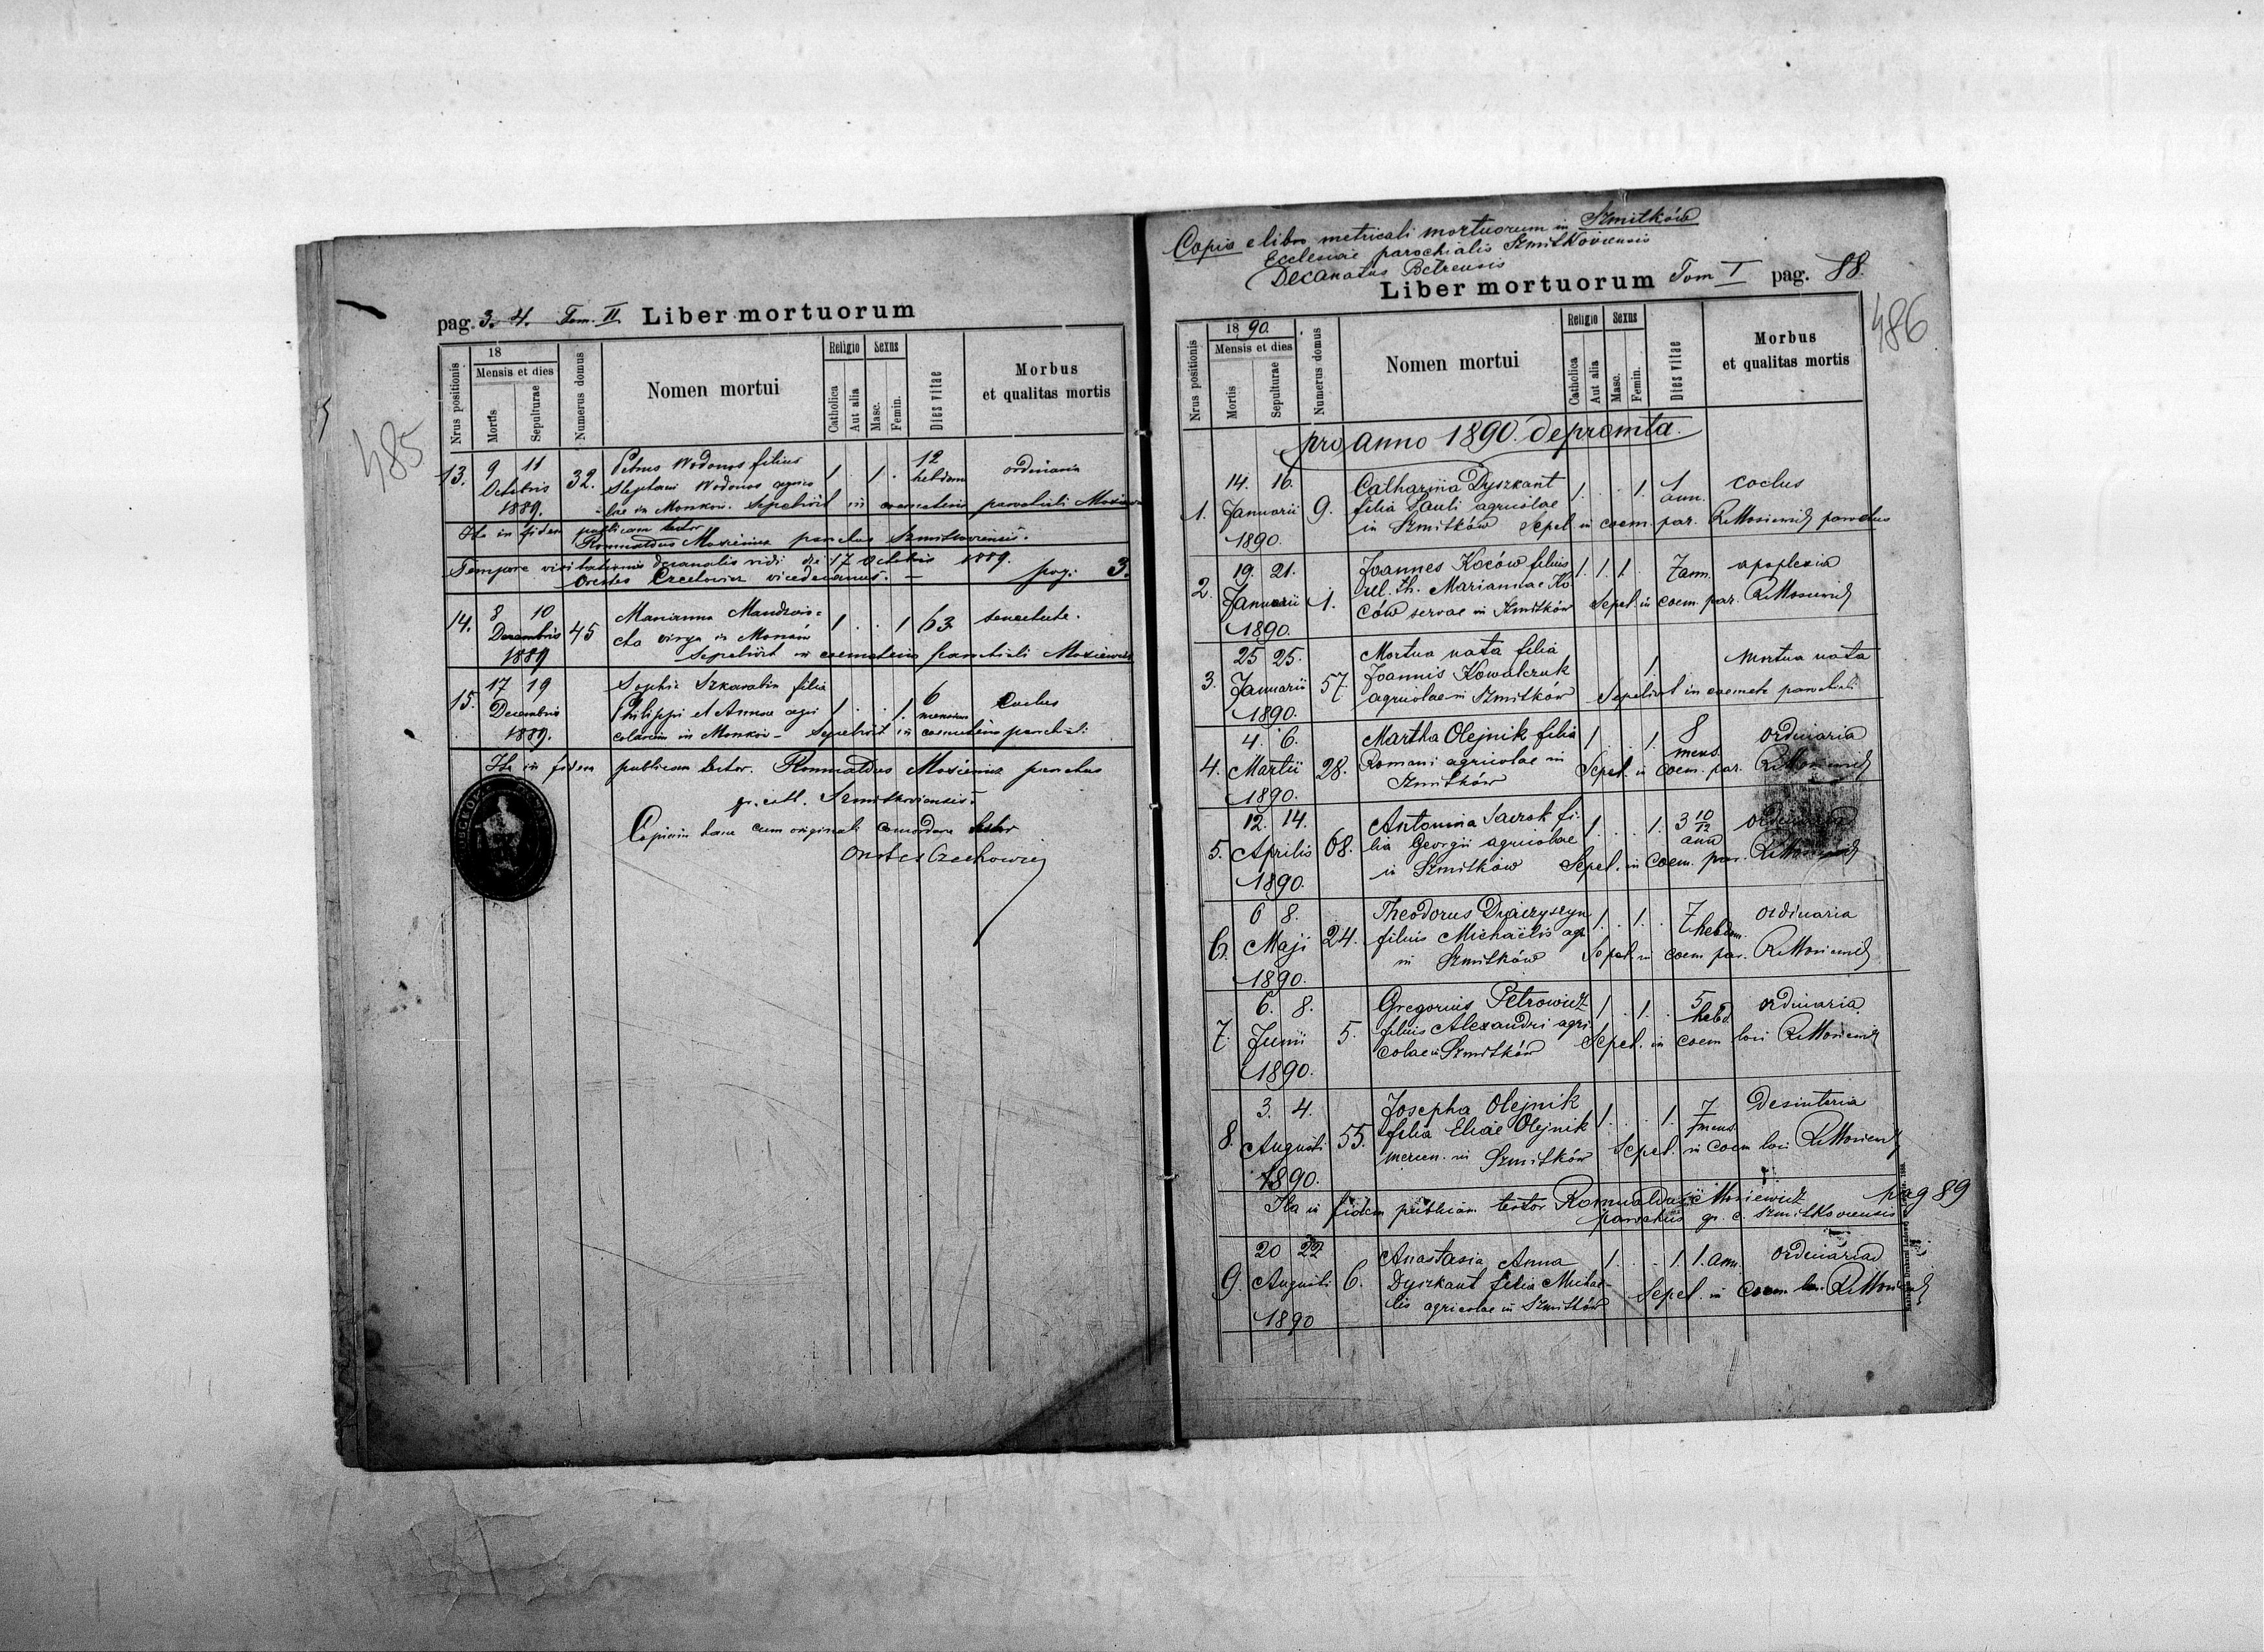 485
pag. 3. 4. Tom. II. Liber mortuorum
Nrus positionis
18
Mensis et dies
Mortis
Sepulturae
Numerus domus
Nomen mortui
Religio
Catholica
Aut alia
Sexus
Masc.
Femin.
Dies vitae
Morbus
et qualitas mortis
13. 9 11 32. Petrus Wodonos filius 1. 1. 12 ordinaria
Octobris Stephani Wodonos agrico hebdom
1889. lae in Monkow. Sepelivit in coemeterio parochiali
Ita in fidem publicam testor
Romualdus parochus Szmitkoviensis.
Tempore visitationis decanalis vidi die 17 Octobris 1889.
Orestes Czechowicz vicedecanus. pag: 3.
14. 8 10 45 Marianna 1 . . 1 63 senectute.
Decembris cta virgo in
1889 Sepelivit in coemeterio parochiali
15. 17 19 Sophia filia 1 . . 1. 6
Decembris Philippi et Annae agri mensium
1889. colarum in Monkow - Sepelivit in coemeterio parochiali
Ita in fidem publicam testor. Romualdus parochus
gr. cath. Szmitkoviensis.
Copiam hanc cum originali concordare testor
Orestes Czechowicz
Copia e libro metricali mortuorum in Szmitków
Ecclesiae parochialis Szmitkoviensis
Decanatus
Liber mortuorum Tom I pag. 88.
486
Nrus positionis
18 90.
Mensis et dies
Mortis
Sepulturae
Numerus domus
Nomen mortui
Religio
Catholica
Aut alia
Sexus
Masc.
Femin.
Dies vitae
Morbus
et qualitas mortis
pro anno 1890. depromta.
14. 16. Catharina Dyszkant 1. . . 1. 1
1. Januarii 9. filia Pauli agricolae ann.
1890. in Szmitków Sepel. in coem. par. parochus
19. 21. Joannes Koców filius 1. 1. 1. 7 ann. apoplexia
2. Januarii 1. rel. th. Mariannae Ko-
1890. ców servae in Szmitków Sepel. in coem. par.
25 25. Mortua nata filia 1. Mortua nata
3. Januarii 57. Joannis Kowalczuk
1890. agricolae in Szmitków Sepelivit in coemet. parochiali
4. 6. Martha Olejnik filia 1 . . 1. 8 ordinaria
4. Martii 28. Romani agricolae in mens.
1890. Szmitków Sepel. in coem. par.
12. 14. Antonina fi- 1. . . 1. 3 10/12 ordinaria
5. Aprilis 68. lia Georgii agricolae ann
1890. in Szmitków Sepel. in coem. par.
6 8. Theodorus 1. . 1. . 7 ordinaria
6. Maji 24. filius Michaëlis agr. hebdom.
1890. in Szmitków Sepel. in coem. par.
6. 8. Gregorius Petrowicz 1. . 1. . 5 ordinaria
7. Junii 5. filius Alexandri agri- hebd.
1890. colae in Szmitków Sepel. in coem loci
3. 4. Josepha Olejnik 1. . . 1. 7 Desinteria
8. Augusti 55. filia Eliae Olejnik mens.
1890. mercen. in Szmitków Sepel. in coem loci
Ita in fidem publicam testor Romualdus pag 89
parochus gr. c. Szmitkoviensis
20 22 Anastasia Anna 1. . . 1. 1. ann. ordinaria
9. Augusti 6. Dyszkant filia Michae-
1890 lis agricolae in Szmitków Sepel. in coem loci